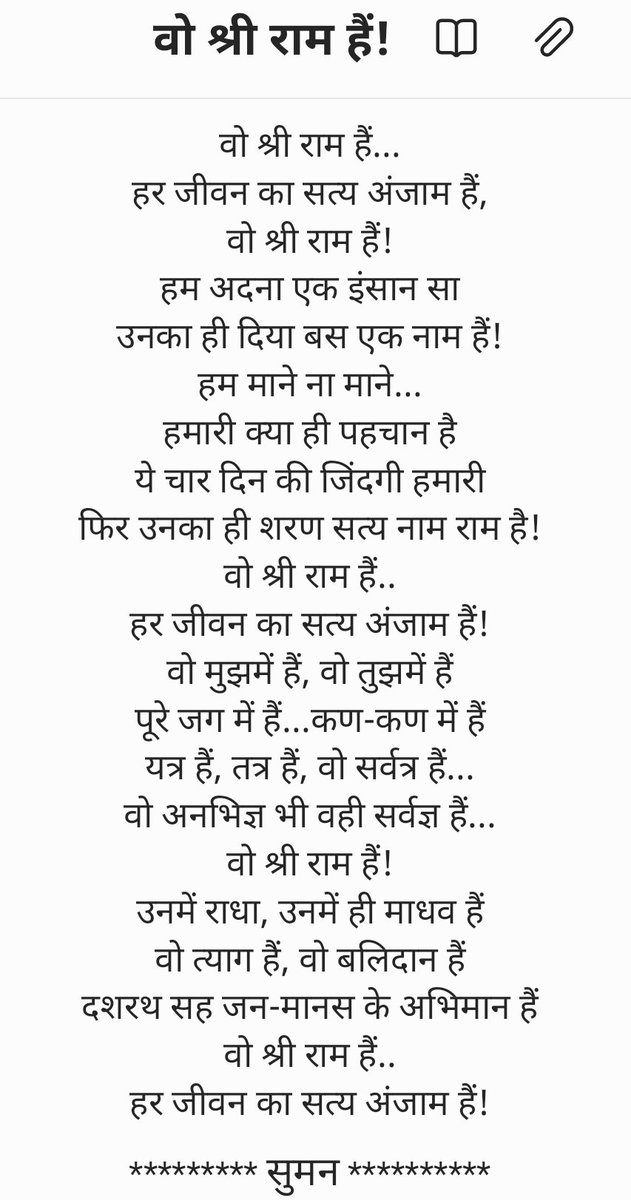 वो श्री राम हैं!
वो श्री राम हैं...
हर जीवन का सत्य अंजाम हैं,
वो श्री राम हैं!
हम अदना एक इंसान सा
उनका ही दिया बस एक नाम हैं!
हम माने ना माने...
हमारी क्या ही पहचान है
ये चार दिन की जिंदगी हमारी
फिर उनका ही शरण सत्य नाम राम है!
वो श्री राम हैं..
हर जीवन का सत्य अंजाम हैं!
वो मुझमें हैं, वो तुझमें हैं
पूरे जग में हैं...कण-कण में हैं
यत्र हैं, तत्र हैं, वो सर्वत्र हैं...
वो अनभिज्ञ भी वही सर्वज्ञ हैं...
वो श्री राम हैं!
उनमें राधा, उनमें ही माधव हैं
वो त्याग हैं, वो बलिदान हैं
दशरथ सह जन-मानस के अभिमान हैं
वो श्री राम हैं..
हर जीवन का सत्य अंजाम हैं!
********* सुमन **********